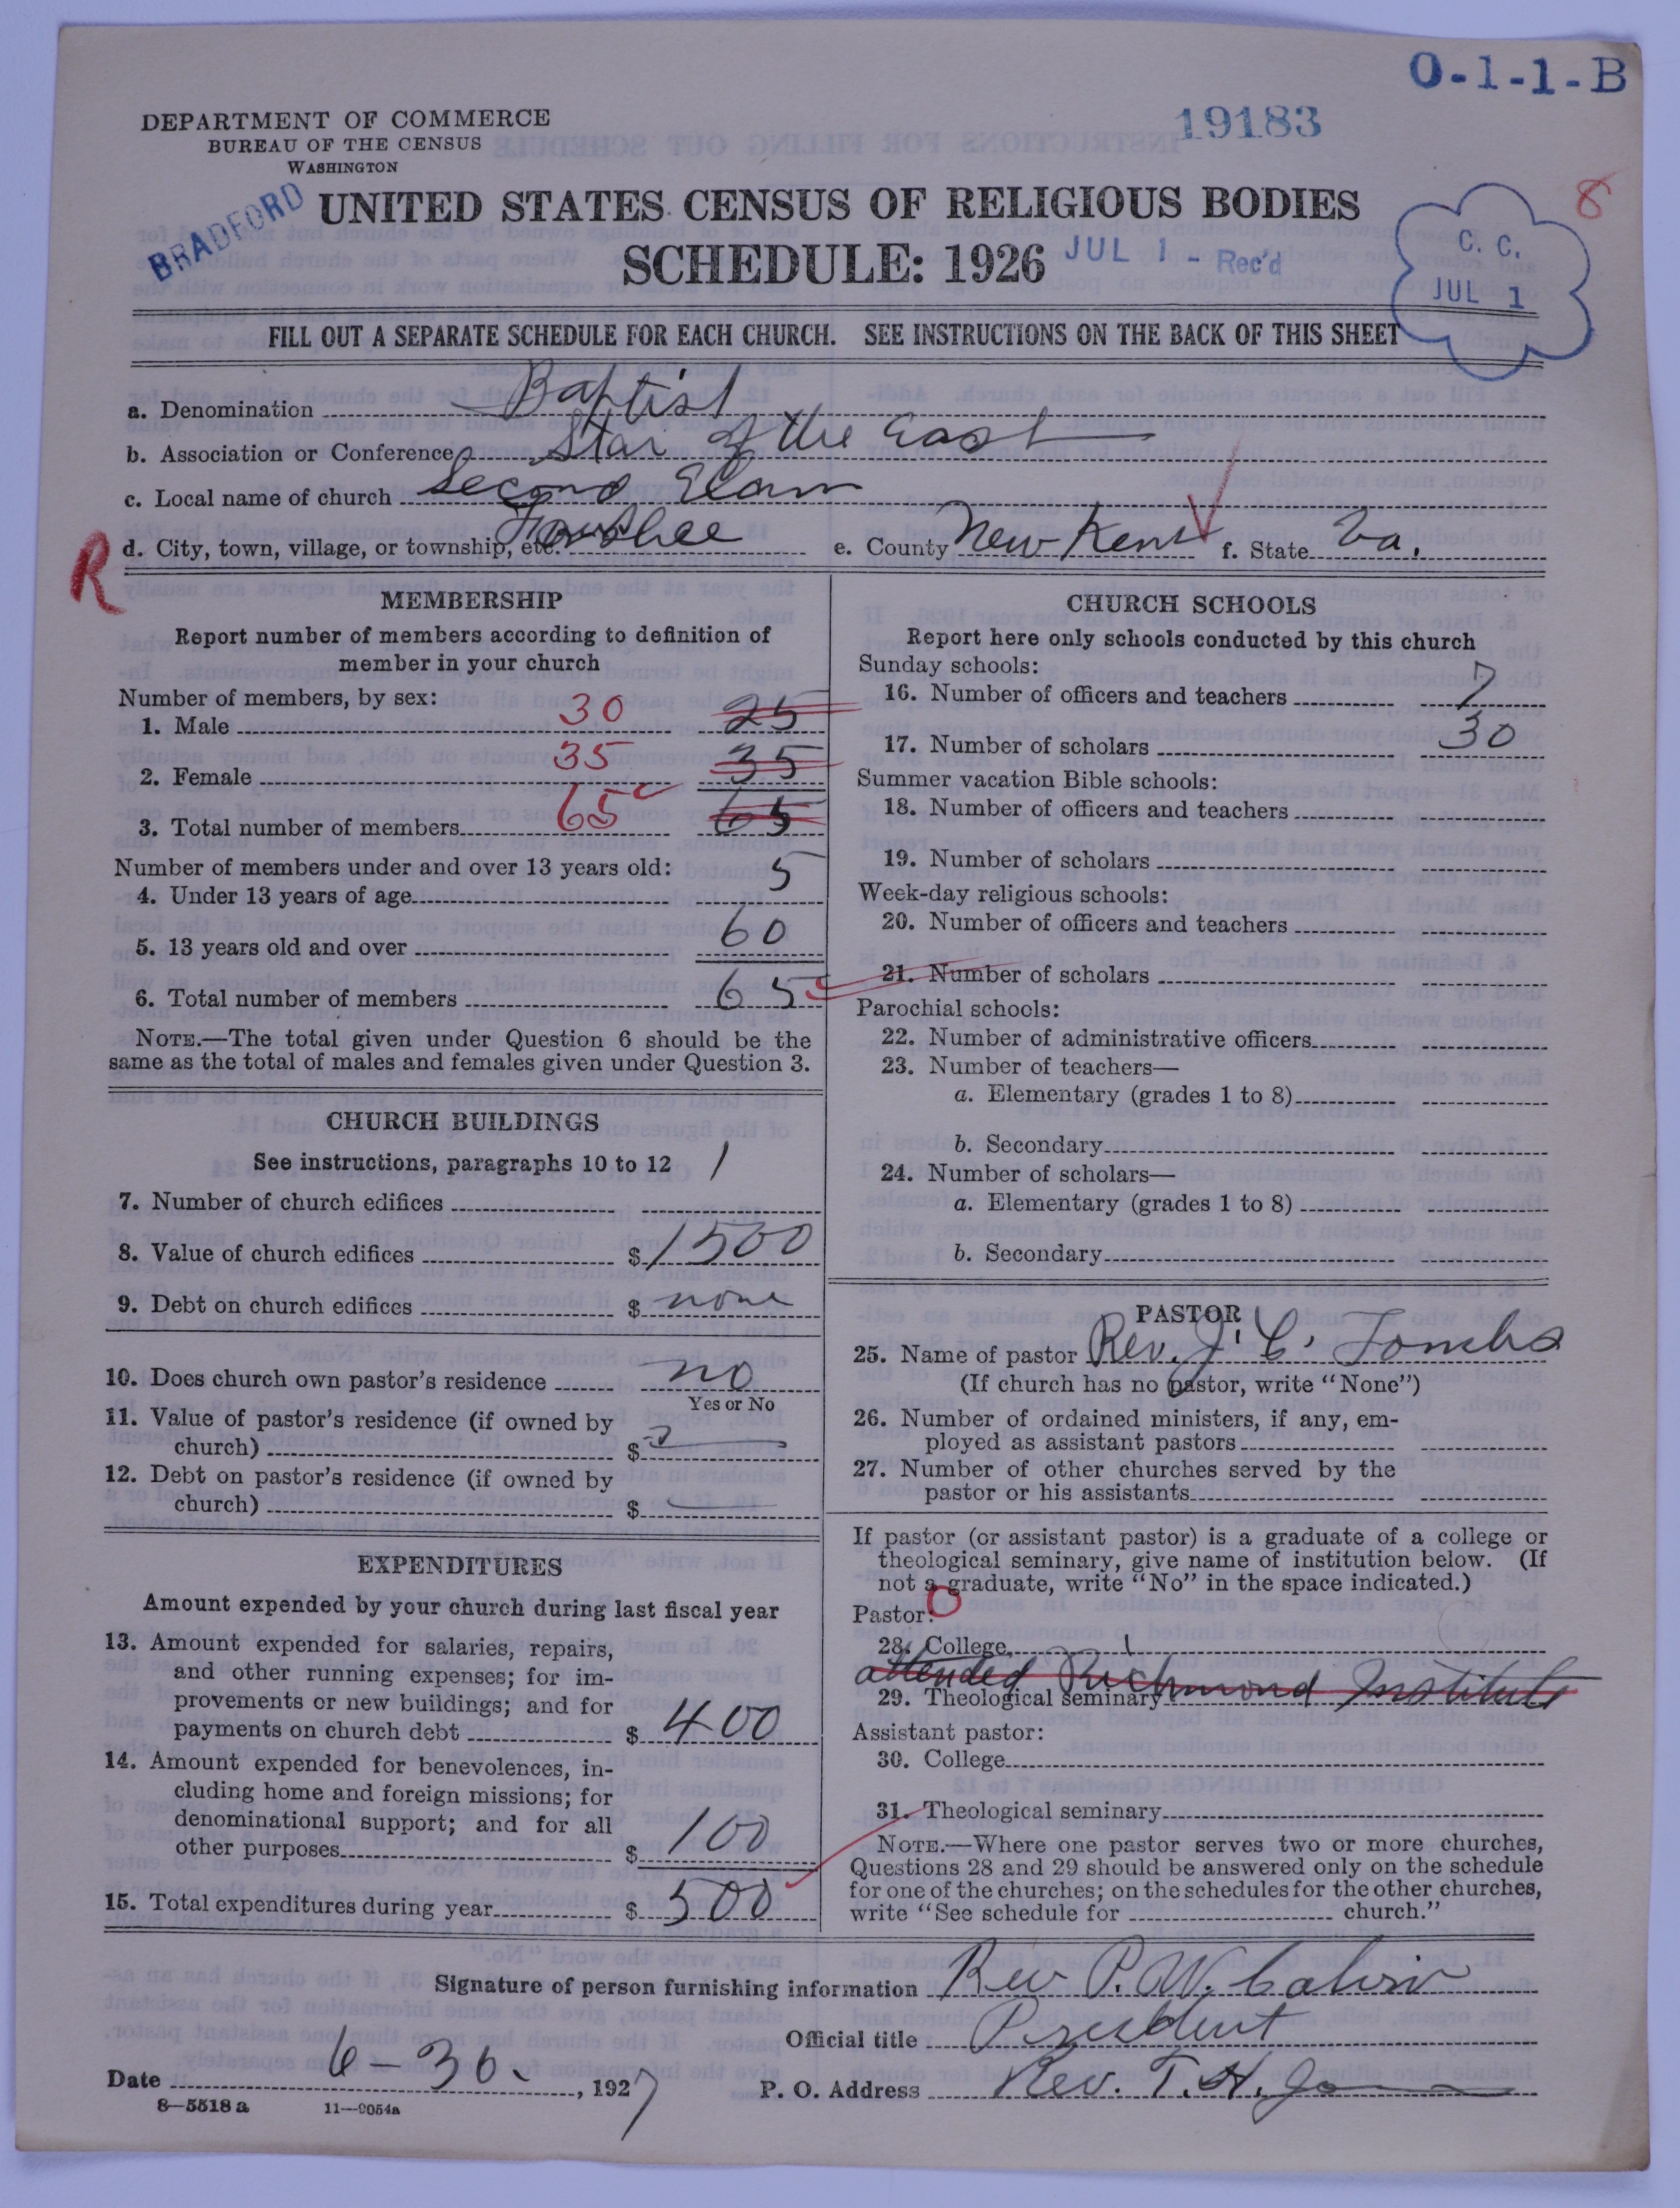 O-1-1-B
19183
DEPARTMENT OF COMMERCE
BUREAU OF THE CENSUS
WASHINGTON
BRADFORD
UNITED STATES CENSUS OF RELIGIOUS BODIES
8
SCHEDULE: 1926
JUL 1 - Rec'd
C. C.
JUL 1
FILL OUT A SEPARATE SCHEDULE FOR EACH CHURCH. SEE INSTRUCTIONS ON THE BACK OF THIS SHEET
a. Denomination Baptist
b. Association or Conference Star of the East
c. Local name of church Second Elam
R
d. City, town, village, or township, etc. e. County New Kent f. State Va.
MEMBERSHIP
Report number of members according to definition of
member in your church
Number of members, by sex:
1. Male 30 25
2. Female 35 35
3. Total number of members 65 65
Number of members under and over 13 years old:
4. Under 13 years of age 5
5. 13 years old and over 60
6. Total number of members 65
NOTE.—The total given under Question 6 should be the
same as the total of males and females given under Question 3.
CHURCH BUILDINGS
See instructions, paragraphs 10 to 12
7. Number of church edifices 1
8. Value of church edifices $1500
9. Debt on church edifices $ none
10. Does church own pastor's residence no
Yes or No
11. Value of pastor's residence (if owned by
church) $
12. Debt on pastor's residence (if owned by
church) $
EXPENDITURES
Amount expended by your church during last fiscal year
13. Amount expended for salaries, repairs,
and other running expenses; for im-
provements or new buildings; and for
payments on church debt $ 400
14. Amount expended for benevolences, in-
cluding home and foreign missions; for
denominational support; and for all
other purposes $ 100
15. Total expenditures during year $ 500
CHURCH SCHOOLS
Report here only schools conducted by this church
Sunday schools:
16. Number of officers and teachers 7
17. Number of scholars 30
Summer vacation Bible schools:
18. Number of officers and teachers
19. Number of scholars
Week-day religious schools:
20. Number of officers and teachers
21. Number of scholars
Parochial schools:
22. Number of administrative officers
23. Number of teachers—
a. Elementary (grades 1 to 8)
b. Secondary
24. Number of scholars—
a. Elementary (grades 1 to 8)
b. Secondary
PASTOR
25. Name of pastor Rev. J. C. Tombs
(If church has no pastor, write "None")
26. Number of ordained ministers, if any, em-
ployed as assistant pastors
27. Number of other churches served by the
pastor or his assistants
If pastor (or assistant pastor) is a graduate of a college or
theological seminary, give name of institution below. (If
not a graduate, write "No" in the space indicated.)
Pastor: 0
28. College
attended Richmond Institute
29. Theological seminary
Assistant pastor:
30. College
31. Theological seminary
NOTE.—Where one pastor serves two or more churches,
Questions 28 and 29 should be answered only on the schedule
for one of the churches; on the schedules for the other churches,
write "See schedule for church."
Signature of person furnishing information Rev P. W.
Official title President
Date 6-30- , 1927 P. O. Address Rev. T. H.
8—5518 a 11—9054a